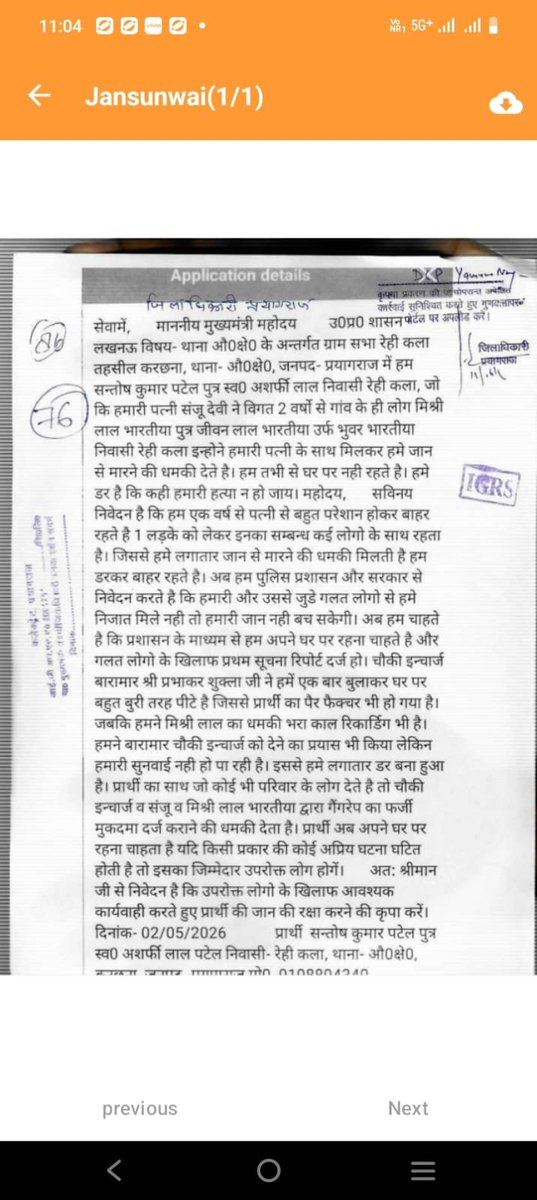 11:04
Vo
NR1 5G+
Jansunwai(1/1)
Application details
जिलाधिकारी प्रयागराज
कृपया प्रकरण की जांचोपरान्त अपेक्षित
कार्रवाई सुनिश्चित करते हुए गुणवत्तापरक
सेवामें, माननीय मुख्यमंत्री महोदय उ0प्र0 शासन पोर्टल पर अपलोड करें।
लखनऊ विषय- थाना औ0क्षे0 के अन्तर्गत ग्राम सभा रेही कला
जिलाधिकारी
प्रयागराज
तहसील करछना, थाना- औ0क्षे0, जनपद- प्रयागराज में हम
सन्तोष कुमार पटेल पुत्र स्व0 अशर्फी लाल निवासी रेही कला, जो
76
कि हमारी पत्नी संजू देवी ने विगत 2 वर्षो से गांव के ही लोग मिश्री
लाल भारतीया पुत्र जीवन लाल भारतीया उर्फ भुवर भारतीया
निवासी रेही कला इन्होने हमारी पत्नी के साथ मिलकर हमे जान
से मारने की धमकी देते है। हम तभी से घर पर नही रहते है। हमे
डर है कि कही हमारी हत्या न हो जाय। महोदय, सविनय
IGRS
निवेदन है कि हम एक वर्ष से पत्नी से बहुत परेशान होकर बाहर
रहते है 1 लड़के को लेकर इनका सम्बन्ध कई लोगो के साथ रहता
है। जिससे हमे लगातार जान से मारने की धमकी मिलती है हम
डरकर बाहर रहते है। अब हम पुलिस प्रशासन और सरकार से
निवेदन करते है कि हमारी और उससे जुडे गलत लोगो से हमे
निजात मिले नही तो हमारी जान नही बच सकेगी। अब हम चाहते
है कि प्रशासन के माध्यम से हम अपने घर पर रहना चाहते है और
गलत लोगो के खिलाफ प्रथम सूचना रिपोर्ट दर्ज हो। चौकी इन्चार्ज
बारामार श्री प्रभाकर शुक्ला जी ने हमें एक बार बुलाकर घर पर
बहुत बुरी तरह पीटे है जिससे प्रार्थी का पैर फैक्चर भी हो गया है।
जबकि हमने मिश्री लाल का धमकी भरा काल रिकार्डिंग भी है।
हमने बारामार चौकी इन्चार्ज को देने का प्रयास भी किया लेकिन
हमारी सुनवाई नही हो पा रही है। इससे हमे लगातार डर बना हुआ
है। प्रार्थी का साथ जो कोई भी परिवार के लोग देते है तो चौकी
इन्चार्ज व संजू व मिश्री लाल भारतीया द्वारा गैंगरेप का फर्जी
मुकदमा दर्ज कराने की धमकी देता है। प्रार्थी अब अपने घर पर
रहना चाहता है यदि किसी प्रकार की कोई अप्रिय घटना घटित
होती है तो इसका जिम्मेदार उपरोक्त लोग होगें। अत: श्रीमान
जी से निवेदन है कि उपरोक्त लोगो के खिलाफ आवश्यक
कार्यवाही करते हुए प्रार्थी की जान की रक्षा करने की कृपा करें।
दिनांक- 02/05/2026 प्रार्थी सन्तोष कुमार पटेल पुत्र
स्व0 अशर्फी लाल पटेल निवासी- रेही कला, थाना- औ0क्षे0,
previous
Next